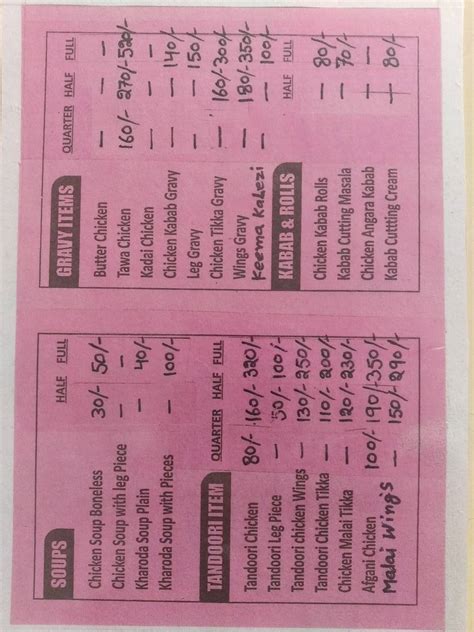 SOUPS HALF FULL
Chicken Soup Boneless 30/- 50/-
Chicken Soup with leg Piece — —
Kharoda Soup Plain — 40/-
Kharoda Soup with Pieces — 100/-
TANDOORI ITEM QUARTER HALF FULL
Tandoori Chicken 80/- 160/- 320/-
Tandoori Leg Piece — 50/- 100/-
Tandoori chicken Wings — 130/- 250/-
Tandoori Chicken Tikka — 110/- 200/-
Chicken Malai Tikka — 120/- 230/-
Afgani Chicken 100/- 190/- 350/-
Malai Wings — 150/- 290/-
GRAVY ITEMS QUARTER HALF FULL
Butter Chicken — — —
Tawa Chicken 160/- 270/- 520/-
Kadai Chicken — — —
Chicken Kabab Gravy — — 140/-
Leg Gravy — — 150/-
Chicken Tikka Gravy — 160/- 300/-
Wings Gravy — 180/- 350/-
Keema Kalezi — — 100/-
KABAB & ROLLS HALF FULL
Chicken Kabab Rolls — 80/-
Kabab Cutting Masala — 70/-
Chicken Angara Kabab — —
Kabab Cuttting Cream — 80/-